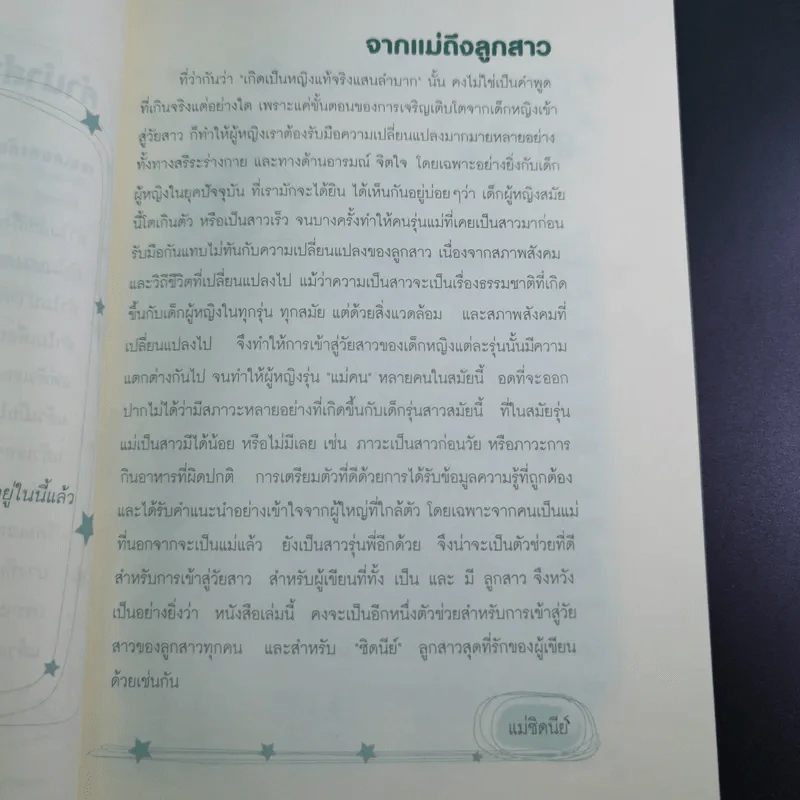 จากแม่ถึงลูกสาว
ที่ว่ากันว่า "เกิดเป็นหญิงแท้จริงแสนลำบาก" นั้น คงไม่ใช่เป็นคำพูด
ที่เกินจริงแต่อย่างใด เพราะแค่ขั้นตอนของการเจริญเติบโตจากเด็กหญิงเข้า
สู่วัยสาว ก็ทำให้ผู้หญิงเราต้องรับมือความเปลี่ยนแปลงมากมายหลายอย่าง
ทั้งทางสรีระร่างกาย และทางด้านอารมณ์ จิตใจ โดยเฉพาะอย่างยิ่งกับเด็ก
ผู้หญิงในยุคปัจจุบัน ที่เรามักจะได้ยิน ได้เห็นกันอยู่บ่อยๆว่า เด็กผู้หญิงสมัย
นี้โตเกินตัว หรือเป็นสาวเร็ว จนบางครั้งทำให้คนรุ่นแม่ที่เคยเป็นสาวมาก่อน
รับมือกันแทบไม่ทันกับความเปลี่ยนแปลงของลูกสาว เนื่องจากสภาพสังคม
และวิถีชีวิตที่เปลี่ยนแปลงไป แม้ว่าความเป็นสาวจะเป็นเรื่องธรรมชาติที่เกิด
ขึ้นกับเด็กผู้หญิงในทุกรุ่น ทุกสมัย แต่ด้วยสิ่งแวดล้อม และสภาพสังคมที่
เปลี่ยนแปลงไป จึงทำให้การเข้าสู่วัยสาวของเด็กหญิงแต่ละรุ่นนั้นมีความ
แตกต่างกันไป จนทำให้ผู้หญิงรุ่น "แม่คน" หลายคนในสมัยนี้ อดที่จะออก
ปากไม่ได้ว่ามีสภาวะหลายอย่างที่เกิดขึ้นกับเด็กรุ่นสาวสมัยนี้ ที่ในสมัยรุ่น
แม่เป็นสาวมีได้น้อย หรือไม่มีเลย เช่น ภาวะเป็นสาวก่อนวัย หรือภาวะการ
กินอาหารที่ผิดปกติ การเตรียมตัวที่ดีด้วยการได้รับข้อมูลความรู้ที่ถูกต้อง
และได้รับคำแนะนำอย่างเข้าใจจากผู้ใหญ่ที่ใกล้ตัว โดยเฉพาะจากคนเป็นแม่
ที่นอกจากจะเป็นแม่แล้ว ยังเป็นสาวรุ่นพี่อีกด้วย จึงน่าจะเป็นตัวช่วยที่ดี
สำหรับการเข้าสู่วัยสาว สำหรับผู้เขียนที่ทั้ง เป็น และ มี ลูกสาว จึงหวัง
เป็นอย่างยิ่งว่า หนังสือเล่มนี้ คงจะเป็นอีกหนึ่งตัวช่วยสำหรับการเข้าสู่วัย
สาวของลูกสาวทุกคน และสำหรับ "ซิดนีย์" ลูกสาวสุดที่รักของผู้เขียน
ด้วยเช่นกัน
แม่ซิดนีย์
อยู่ในนี้แล้ว